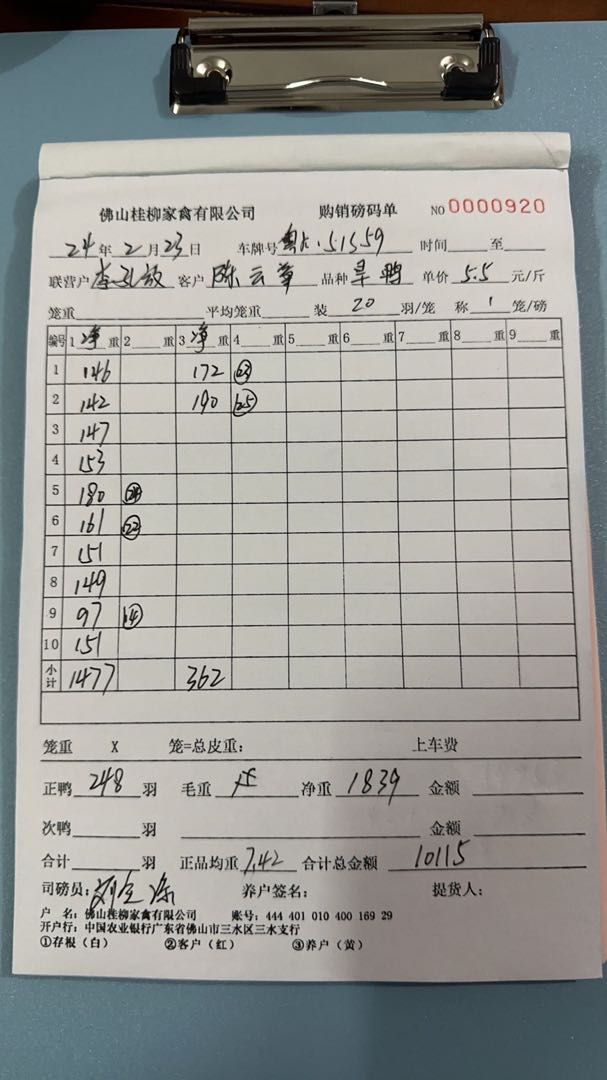 佛山桂柳家禽有限公司 购销磅码单 NO 0000920
24年2月23日 车牌号 51559 时间 至
联营户 李 客户 陈云 品种 旱鸭 单价 5.5 元/斤
笼重 平均笼重 装 20 羽/笼 称 1 笼/磅
编号 1 净 重 2 重 3 净 重 4 重 5 重 6 重 7 重 8 重 9 重
1 146 172 23
2 142 190 25
3 147
4 153
5 180 24
6 161 22
7 151
8 149
9 97 14
10 151
小计 1477 362
笼重 X 笼=总皮重: 上车费
正鸭 248 羽 毛重 净重 1839 金额
次鸭 羽 金额
合计 羽 正品均重 7.42 合计总金额 10115
司磅员: 刘 养户签名: 提货人:
户 名: 佛山桂柳家禽有限公司 账号: 444 401 010 400 169 29
开户行: 中国农业银行广东省佛山市三水区三水支行
①存根（白） ②客户（红） ③养户（黄）